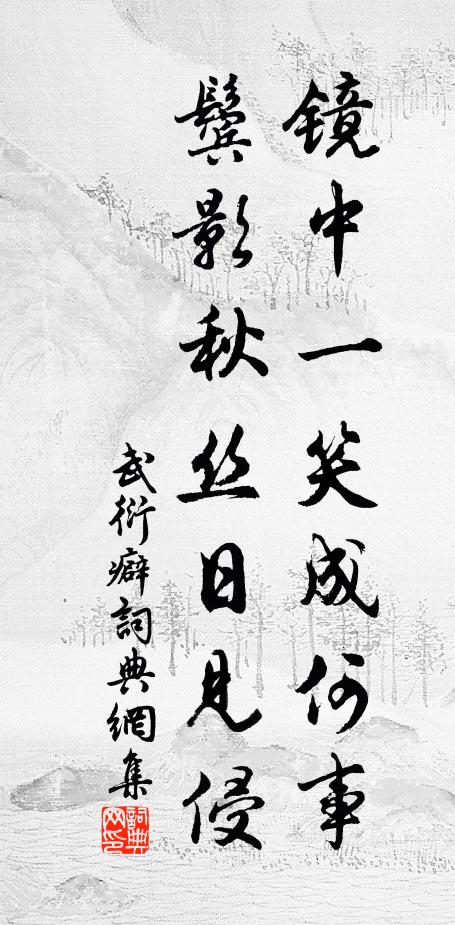 镜中一笑成何事
鬓影秋丝日见侵
武衍癖詞典網集
詞典网印